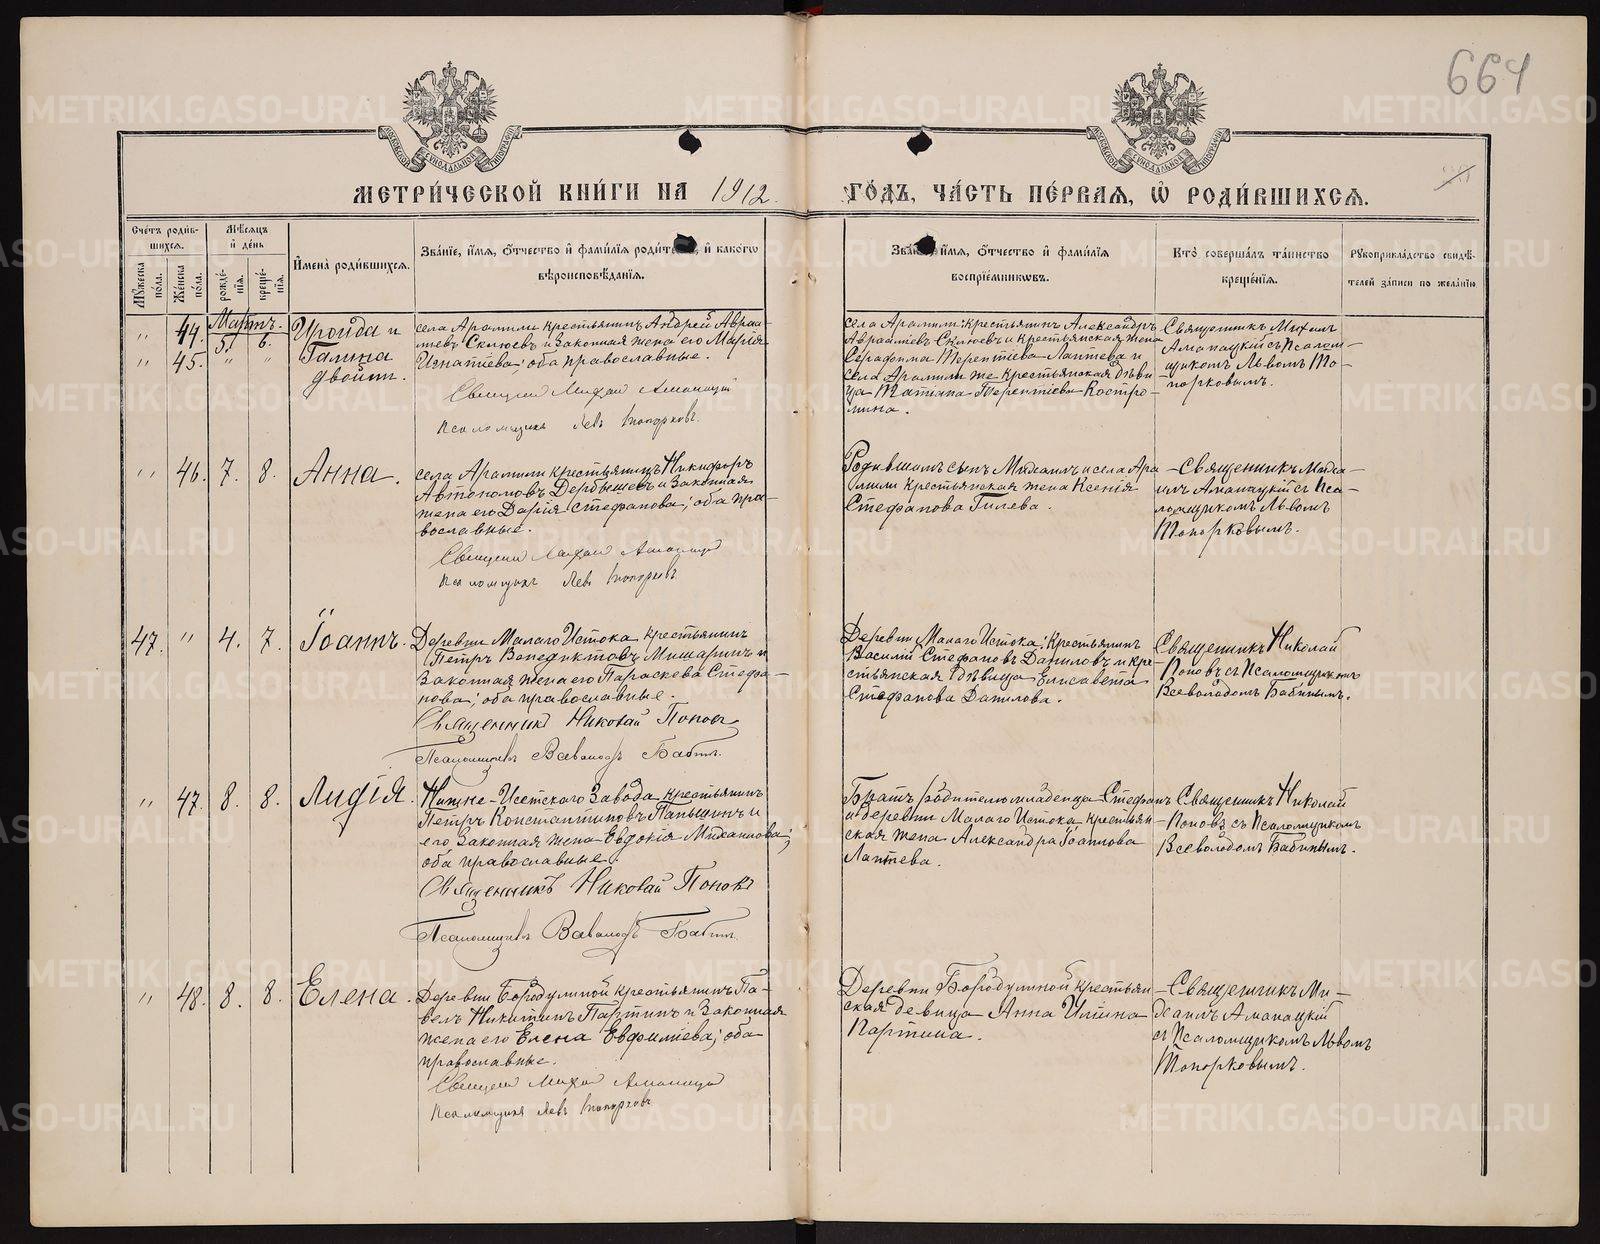 664
МЕТРИ́ЧЕСКОЙ КНИ́ГИ НА 1912
ГО́ДЪ, ЧА́СТЬ ПЕ́РВАЯ, Ѡ҆ РОДИ́ВШИХСЯ.
Сче́тъ роди́в-
шихся.
Мѣ́сяцъ
и҆ де́нь
И҆мена̀ роди́вшихся.
Зва́нїе, и҆́мя, ѻ҆́тчество и҆ фами́лїя роди́те , и҆ како́гѡ
вѣроисповѣ́данїя.
Мꙋ́жеска
по́ла.
Же́нска
по́ла.
рожде́-
нїя.
креще́-
нїя.
Зва́ и҆́мя, ѻ҆́тчество и҆ фами́лїя
воспрїе́мникѡвъ.
Кто̀ соверша́лъ та́инство
креще́нїя.
Рꙋкоприкла́дство свидѣ́-
телей за́писи по жела́нїю.
" 44. Мартъ. 5. 6.
" 45. " "
Ироида и
Галина
двойни.
села Арамили крестьянинъ Андрей Авраа-
міевъ Склюевъ и законная жена его Марія
Игнатіева; оба православные.
Священникъ Михаил Аманацкій
Псаломщикъ Левъ Топорковъ.
села Арамили: крестьянинъ Александръ
Авраамiевъ Склюевъ и крестьянская жена
Серафима Терентіева Лаптева и
села Арамили же крестьянская дѣви-
ца Татіана Терентіева Костро-
мина.
Священникъ Михаил
Аманацкій съ Псалом-
щикомъ Львомъ То-
порковымъ.
" 46. 7. 8. Анна.
села Арамили крестьянинъ Никифоръ
Автономовъ Дербышевъ и законная
жена его Дарія Стефанова; оба пра-
вославные.
Священник Михаил Аманацкій
Псаломщикъ Левъ Топорковъ
Родившаго сынъ Михаилъ и села Ара
мили крестьянская жена Ксенія
Стефанова Гилева.
Священникъ Миха-
илъ Аманацкій съ Пса-
ломщикомъ Львомъ
Топорковымъ.
47. " 4. 7. Іоаннъ.
Деревни Малаго Истока крестьянинъ
Петръ Венедиктовъ Мишаринъ и
законная жена его Параскева Стефа-
нова; оба православные.
Священникъ Николай Поповъ
Псаломщикъ Всеволодъ Бабинъ.
Деревни Малаго Истока: крестьянинъ
Василій Стефановъ Даниловъ и кре-
стьянская дѣвица Елисавета
Стефанова Данилова.
Священникъ Николай
Поповъ съ Псаломщикомъ
Всеволодомъ Бабинымъ.
" 47. 8. 8. Лидія.
Нижне-Исетскаго Завода крестьянинъ
Петръ Константиновъ Паньшинъ и
его законная жена Евдокія Михаилова;
оба православные.
Священникъ Николай Поповъ
Псаломщикъ Всеволодъ Бабинъ.
Братъ родителю младенца Стефанъ
и деревни Малаго Истока крестьян-
ская жена Александра Іоаннова
Лаптева.
Священникъ Николай
Поповъ съ Псаломщикомъ
Всеволодомъ Бабинымъ.
" 48. 8. 8. Елена.
Деревни Бородулиной крестьянинъ Па-
велъ Никитинъ Партинъ и законная
жена его Елена Евфиміева; оба
православные.
Священник Михаил Аманацкій
Псаломщикъ Левъ Топорковъ
Деревни Бородулиной крестьян-
ская девица Анна Иліина
Партина.
Священникъ Ми-
хаилъ Аманацкій
съ Псаломщикомъ Львомъ
Топорковымъ.
METRIKI.GASO-URAL.RU